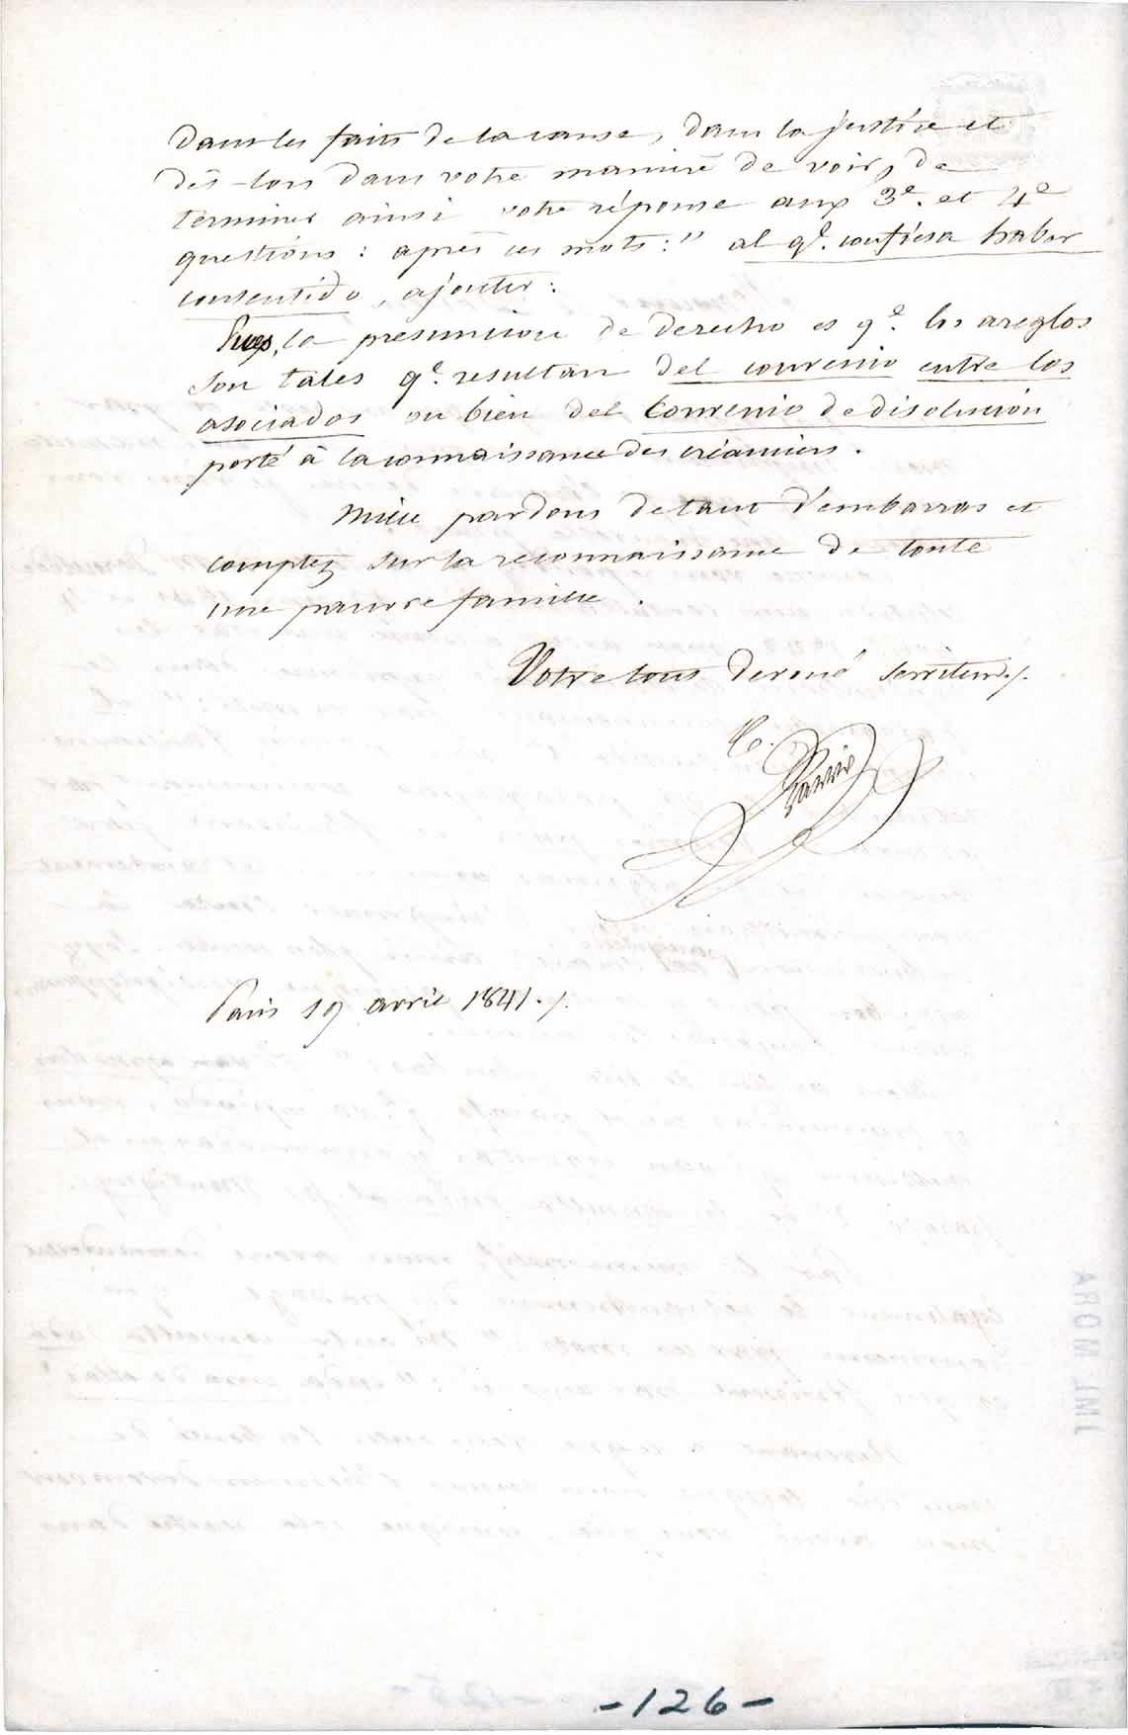 dans les faits de la cause, dans la justice et
dès-lors dans votre manière de voir, de
terminer ainsi votre réponse aux 3e. et 4e
questions : après ces mots :" al qe. confiesa haber
consentido, ajouter :
Pues, la presuncion de derecho es qe. los areglos
son tales qe. resultan del convenio entre los
asociados ou bien del Convenio de disolucion
porté à la connaissance des créanciers.
Mille pardons de tant d'embarras et
comptez sur la reconnaissance de toute
une pauvre famille.
Votre tout dévoué serviteur./.
Paris 19 avril 1841./.
-126-